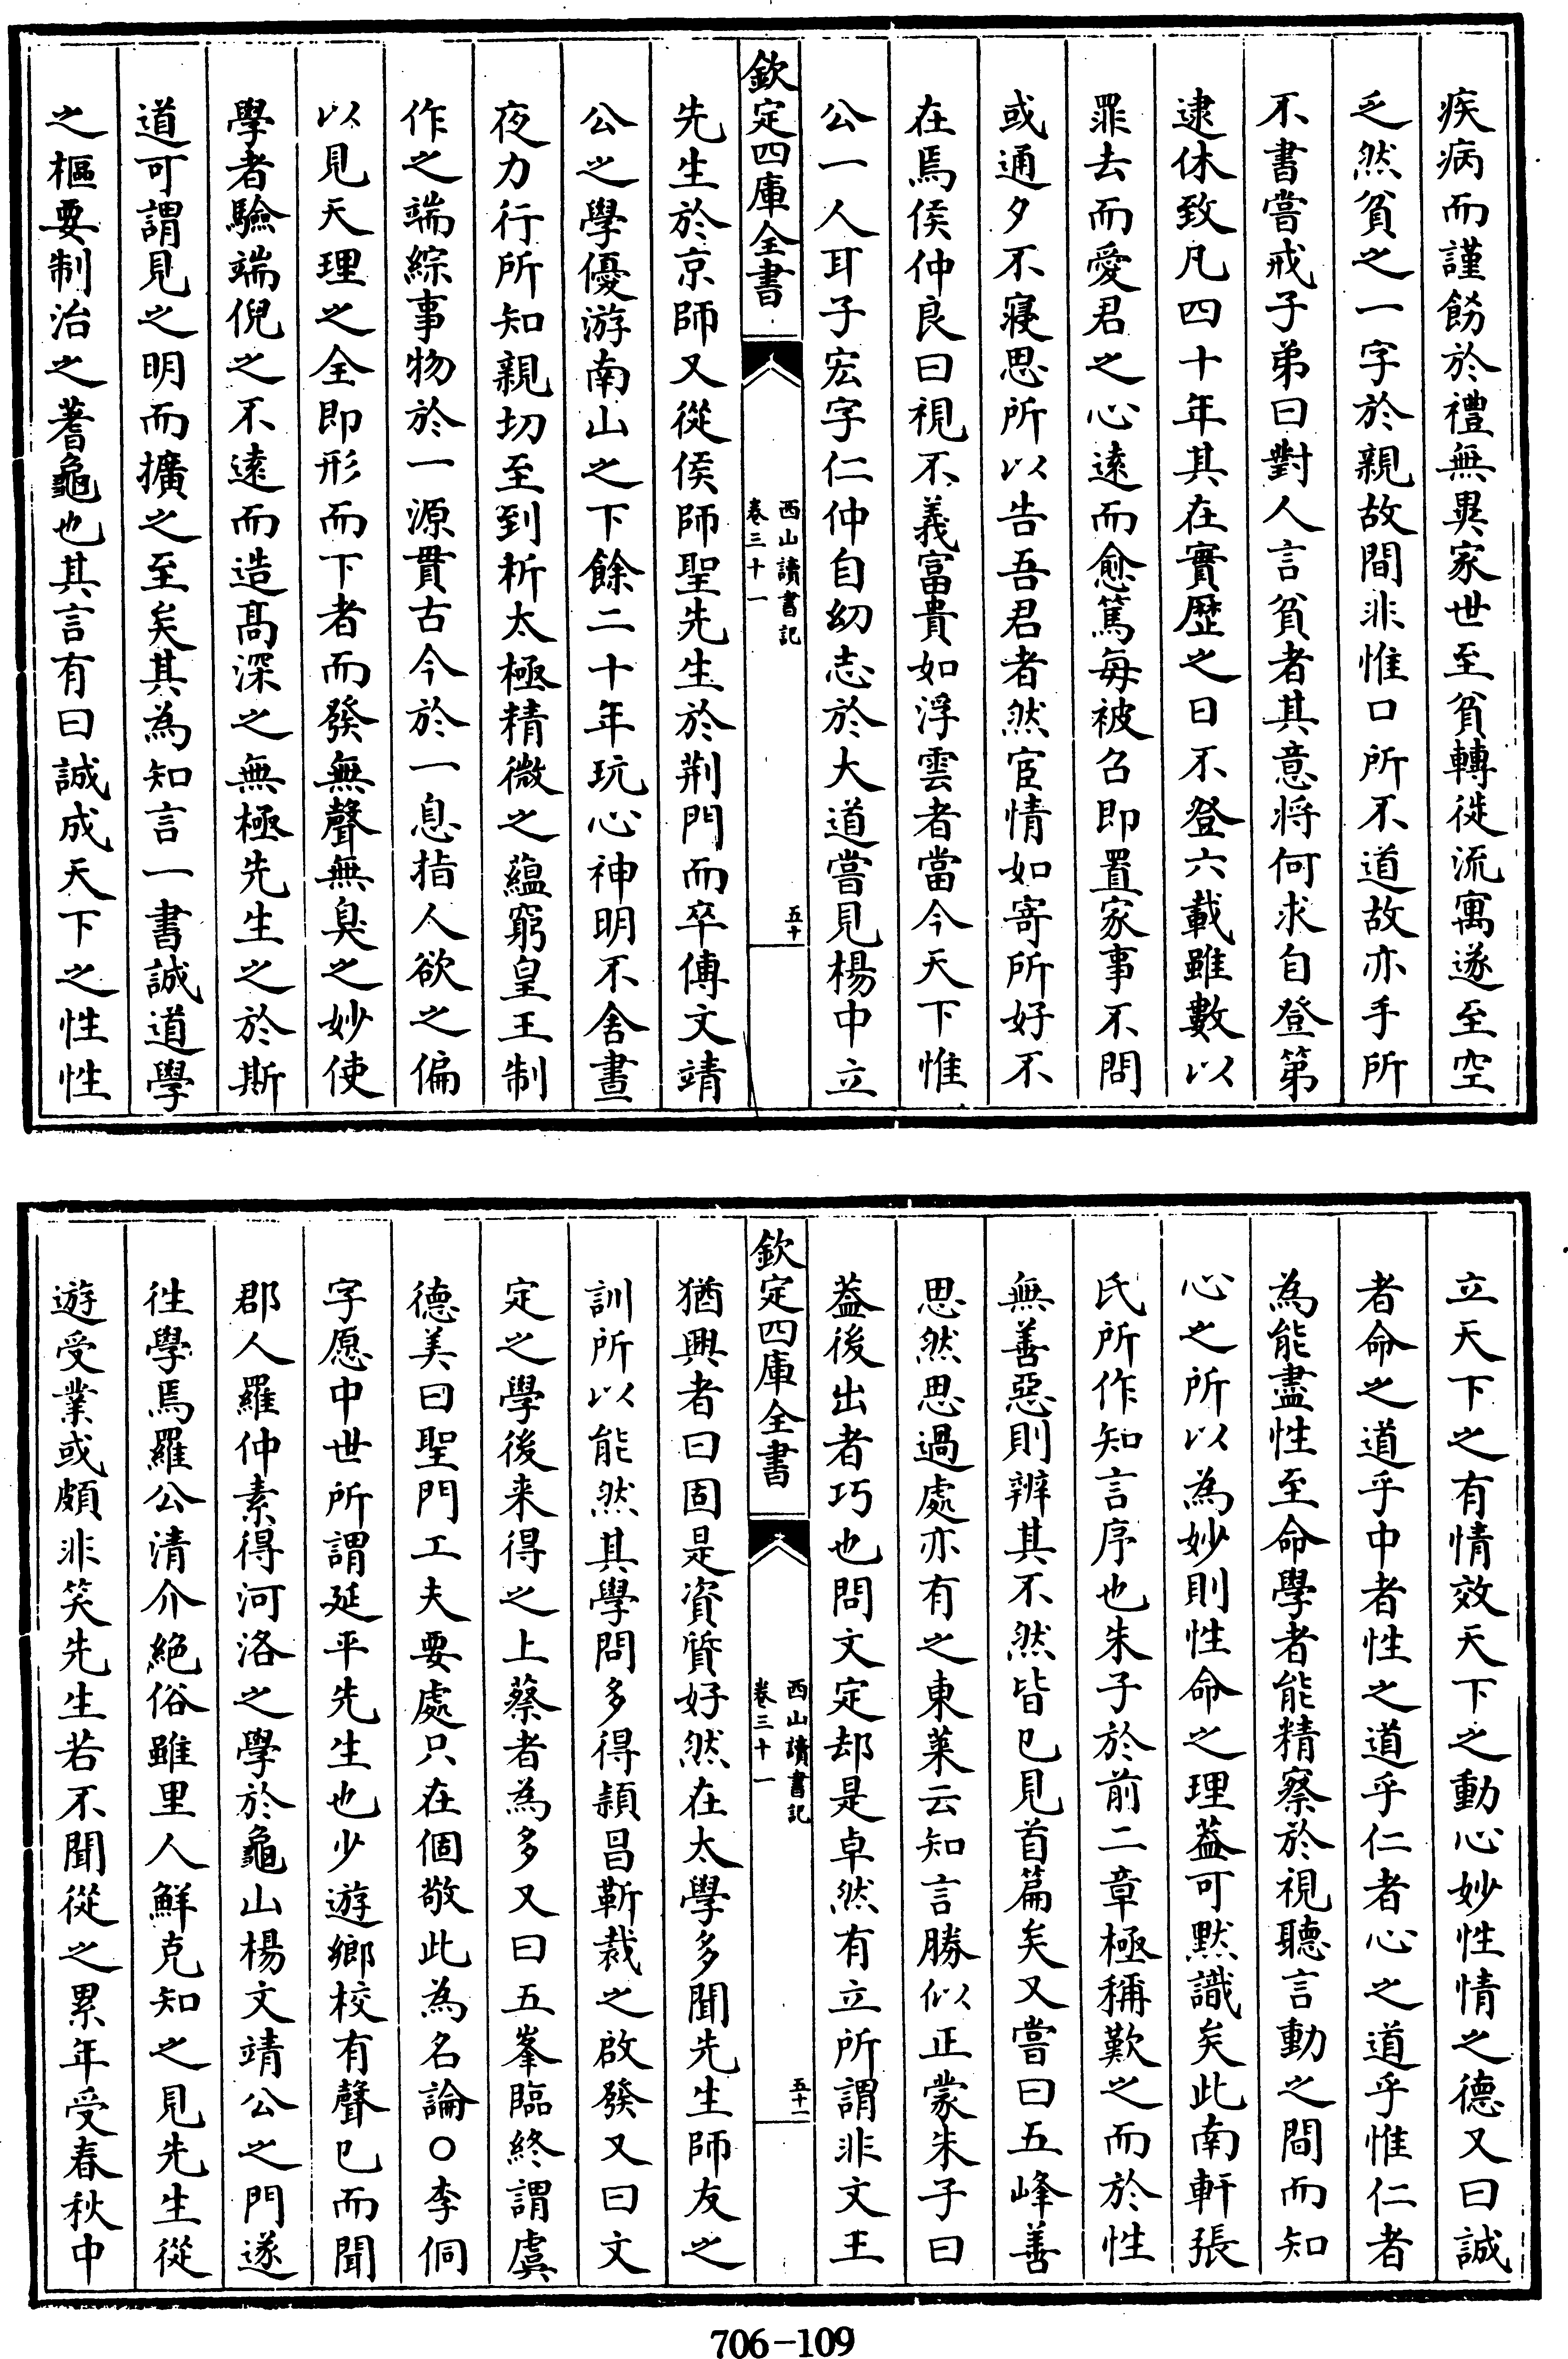 疾病而謹飭於禮無異家世至貧轉徙流寓遂至空
乏然貧之一字於親故間非惟口所不道故亦手所
不書嘗戒子弟曰對人言貧者其意將何求自登第
逮休致凡四十年其在實歴之日不登六載雖數以
罪去而愛君之心遠而愈篤每被召即置家事不問
或通夕不寝思所以告吾君者然宦情如寄所好不
在焉侯仲良曰視不義富貴如浮雲者當今天下惟
公一人耳子宏字仁仲自幼志於大道嘗見楊中立
欽定四庫全書
西山讀書記
卷三十一
五十
先生於京師又從侯師聖先生於荆門而卒傳文靖
公之學優游南山之下餘二十年玩心神明不舍晝
夜力行所知親切至到析太極精微之蘊窮皇王制
作之端綜事物於一源貫古今於一息指人欲之偏
以見天理之全即形而下者而發無聲無臭之妙使
學者驗端倪之不遠而造髙深之無極先生之於斯
道可謂見之明而擴之至矣其為知言一書誠道學
之樞要制治之蓍龜也其言有曰誠成天下之性性
立天下之有情效天下之動心妙性情之德又曰誠
者命之道乎中者性之道乎仁者心之道乎惟仁者
為能盡性至命學者能精察於視聽言動之間而知
心之所以為妙則性命之理葢可黙識矣此南軒張
氏所作知言序也朱子於前二章極稱歎之而於性
無善惡則辨其不然皆已見首篇矣又嘗曰五峰善
思然思過處亦有之東萊云知言勝似正蒙朱子曰
葢後出者巧也問文定却是卓然有立所謂非文王
欽定四庫全書
西山讀書記
卷三十一
五十一
猶興者曰固是資質好然在太學多聞先生師友之
訓所以能然其學問多得頴昌靳裁之啟發又曰文
定之學後来得之上蔡者為多又曰五峯臨終謂虞
德美曰聖門工夫要處只在個敬此為名論○李侗
字愿中世所謂延平先生也少遊鄉校有聲已而聞
郡人羅仲素得河洛之學於龜山楊文靖公之門遂
徃學焉羅公清介絶俗雖里人鮮克知之見先生從
遊受業或頗非笑先生若不聞從之累年受春秋中
706-109